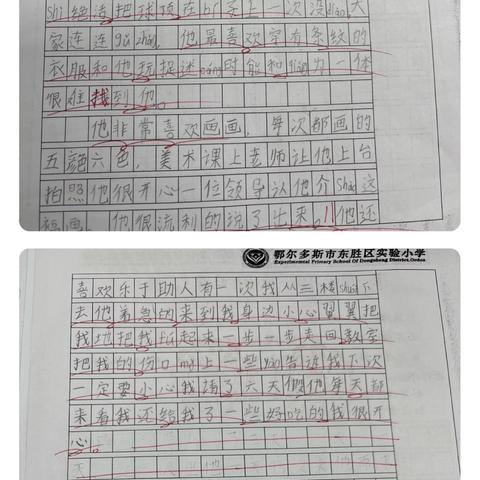 shi绝活把球顶在bí子上一次没diào,大
家连连gǔ zhǎng,他最喜欢穿有条纹的
衣服和他玩捉迷cáng时能和qiáng为一体
很难找到他。
他非常喜欢画画,每次都画的
五颜六色,美术课上老师让他上台
拍照他很开心一位领导让他介shào这
幅画,他很流利的说了出来。他还
鄂尔多斯市东胜区实验小学
Experimental Primary School Of Dongsheng District, Ordos
喜欢乐于助人有一次我从三楼shuāi下
去他着急的来到我身边小心翼翼把
我地把我fú起来一步一步走回教室
把我的伤口 上一些yào告诉我下次
一定要小心我请了六天假他每天都
来看我还给我了一些好吃的我很开
心。